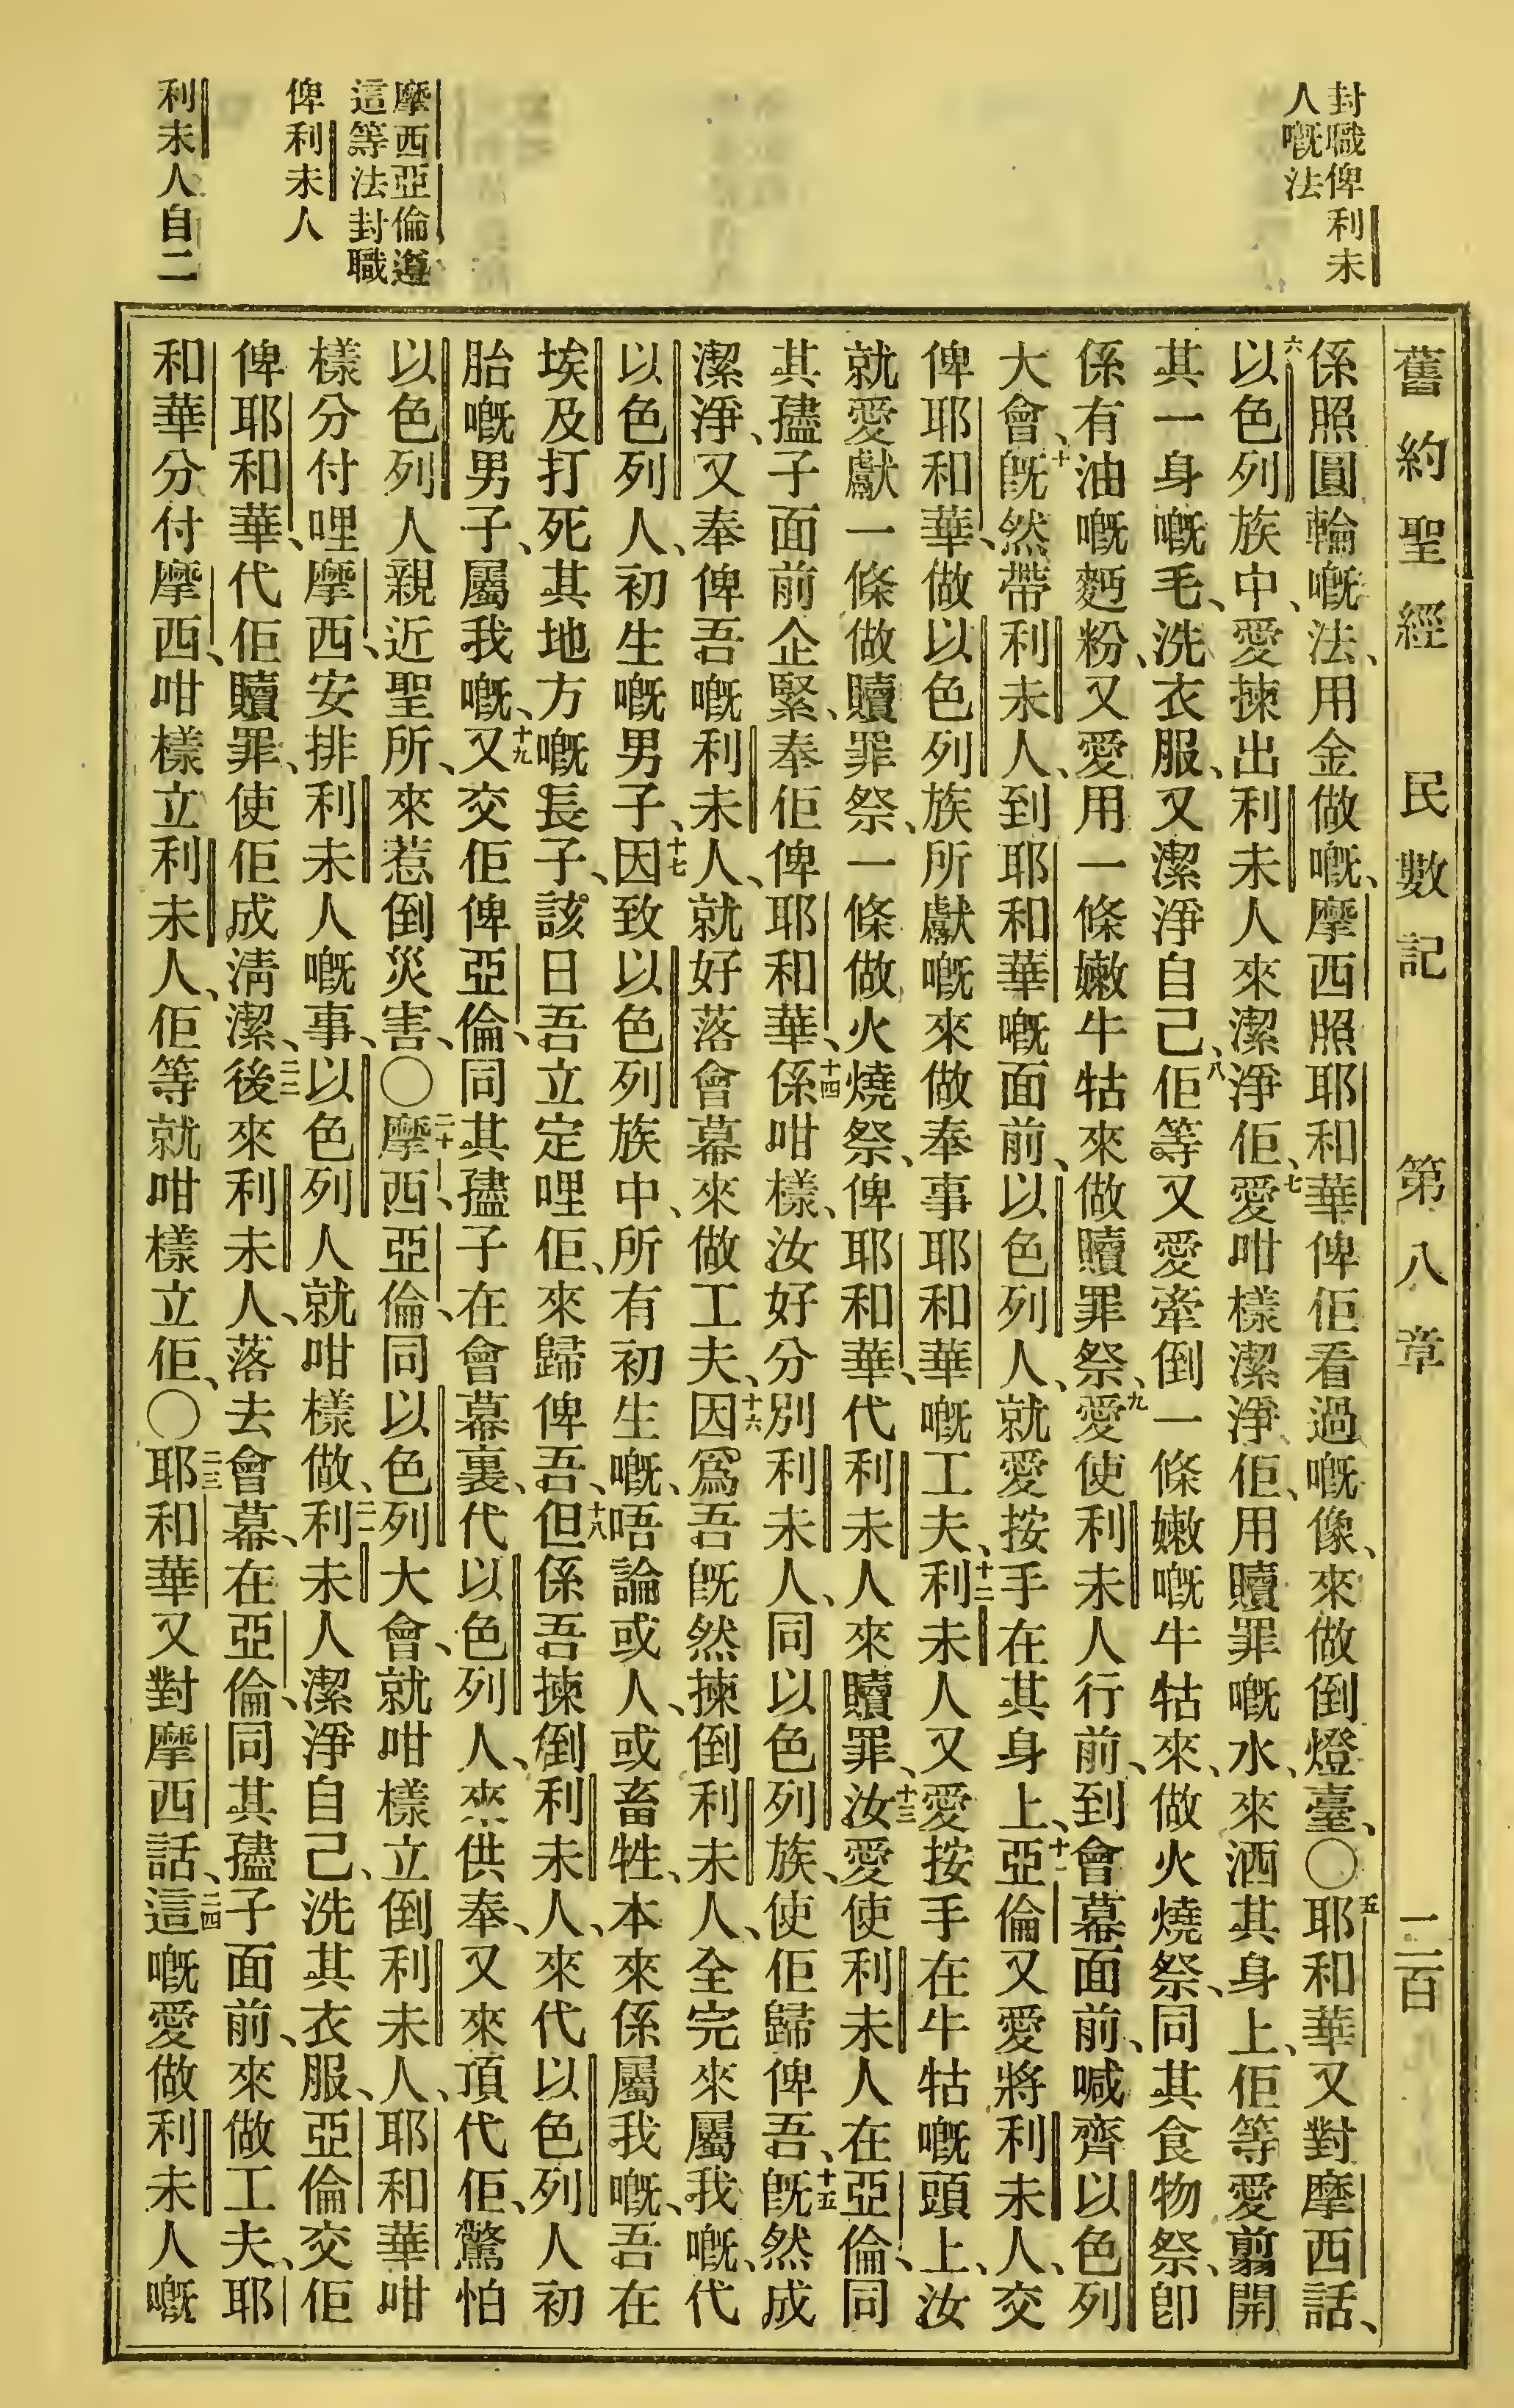 舊約聖經 民數記 第八章 二百
封職俾利未
人嘅法
摩西亞倫遵
這等法封職
俾利未人
利未人自二
係照圓輪嘅法、用金做嘅、摩西照耶和華俾佢看過嘅像、來做倒燈臺、〇五耶和華又對摩西話、
六以色列族中、愛揀出利未人來潔淨佢、七愛咁樣潔淨佢、用贖罪嘅水、來洒其身上、佢等愛翦開
其一身嘅毛、洗衣服、又潔淨自己、八佢等又愛牽倒一條嫩嘅牛牯來、做火燒祭、同其食物祭、卽
係有油嘅麪粉、又愛用一條嫩牛牯來做贖罪祭、九愛使利未人行前、到會幕面前、喊齊以色列
大會、十旣然帶利未人、到耶和華嘅面前、以色列人、就愛按手在其身上、十一亞倫又愛將利未人、交
俾耶和華、做以色列族所獻嘅來做奉事耶和華嘅工夫、十二利未人又愛按手在牛牯嘅頭上、汝
就愛獻一條做贖罪祭、一條做火燒祭、俾耶和華、代利未人來贖罪、十三汝愛使利未人在亞倫、同
其孻子面前企緊、奉佢俾耶和華、十四係咁樣、汝好分別利未人、同以色列族、使佢歸俾吾、十五旣然成
潔淨、又奉俾吾嘅利未人、就好落會幕來做工夫、十六因爲吾旣然揀倒利未人、全完來屬我嘅、代
以色列人、初生嘅男子、十七因致以色列族中、所有初生嘅、唔論或人、或畜牲、本來係屬我嘅、吾在
埃及打死其地方嘅長子、該日吾立定哩佢、來歸俾吾、十八但係吾揀倒利未人、來代以色列人初
胎嘅男子、屬我嘅、十九又交佢俾亞倫、同其孻子在會幕裏、代以色列人、來供奉、又來頂代佢、驚怕
以色列人親近聖所、來惹倒災害、〇二十摩西、亞倫、同以色列大會、就咁樣立倒利未人、耶和華咁
樣分付哩摩西、安排利未人嘅事、以色列人就咁樣做、二一利未人潔淨自己、洗其衣服、亞倫交佢
俾耶和華、代佢贖罪、使佢成淸潔、二二後來利未人、落去會幕、在亞倫、同其孻子面前、來做工夫、耶
和華分付摩西、咁樣立利未人、佢等就咁樣立佢、〇二三耶和華又對摩西話、二四這嘅愛做利未人嘅